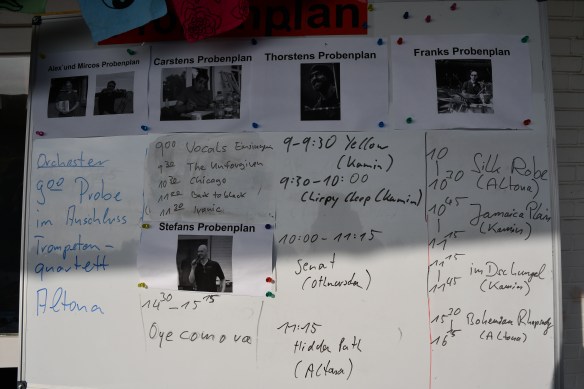 Probenplan.
Alex und Mircos Probenplan
Orchester
9⁰⁰ Probe
im Anschluss
Trompeten-
quartett
Altona
Carstens Probenplan
9⁰⁰ Vocals Einsingen
9³⁰ The Unforgiven
10³⁰ Chicago
11⁰⁰ Back to black
11³⁰ Ironic
Stefans Probenplan
14³⁰ - 15¹⁵
Oye como va
Thorstens Probenplan
9-9:30 Yellow
(Kamin)
9:30-10:00
Chirpy Cheep (Kamin)
10:00 - 11:15
Senat
11:15
Hidden Path
(Altona)
Franks Probenplan
10
10³⁰ Silk Robe
(Altona)
10⁴⁵ Jamaica Plain
11¹⁵ (Kamin)
11¹⁵ im Dschungel
11⁴⁵ (Kamin)
15³⁰ Bohemian Rhapsody
(Altona)